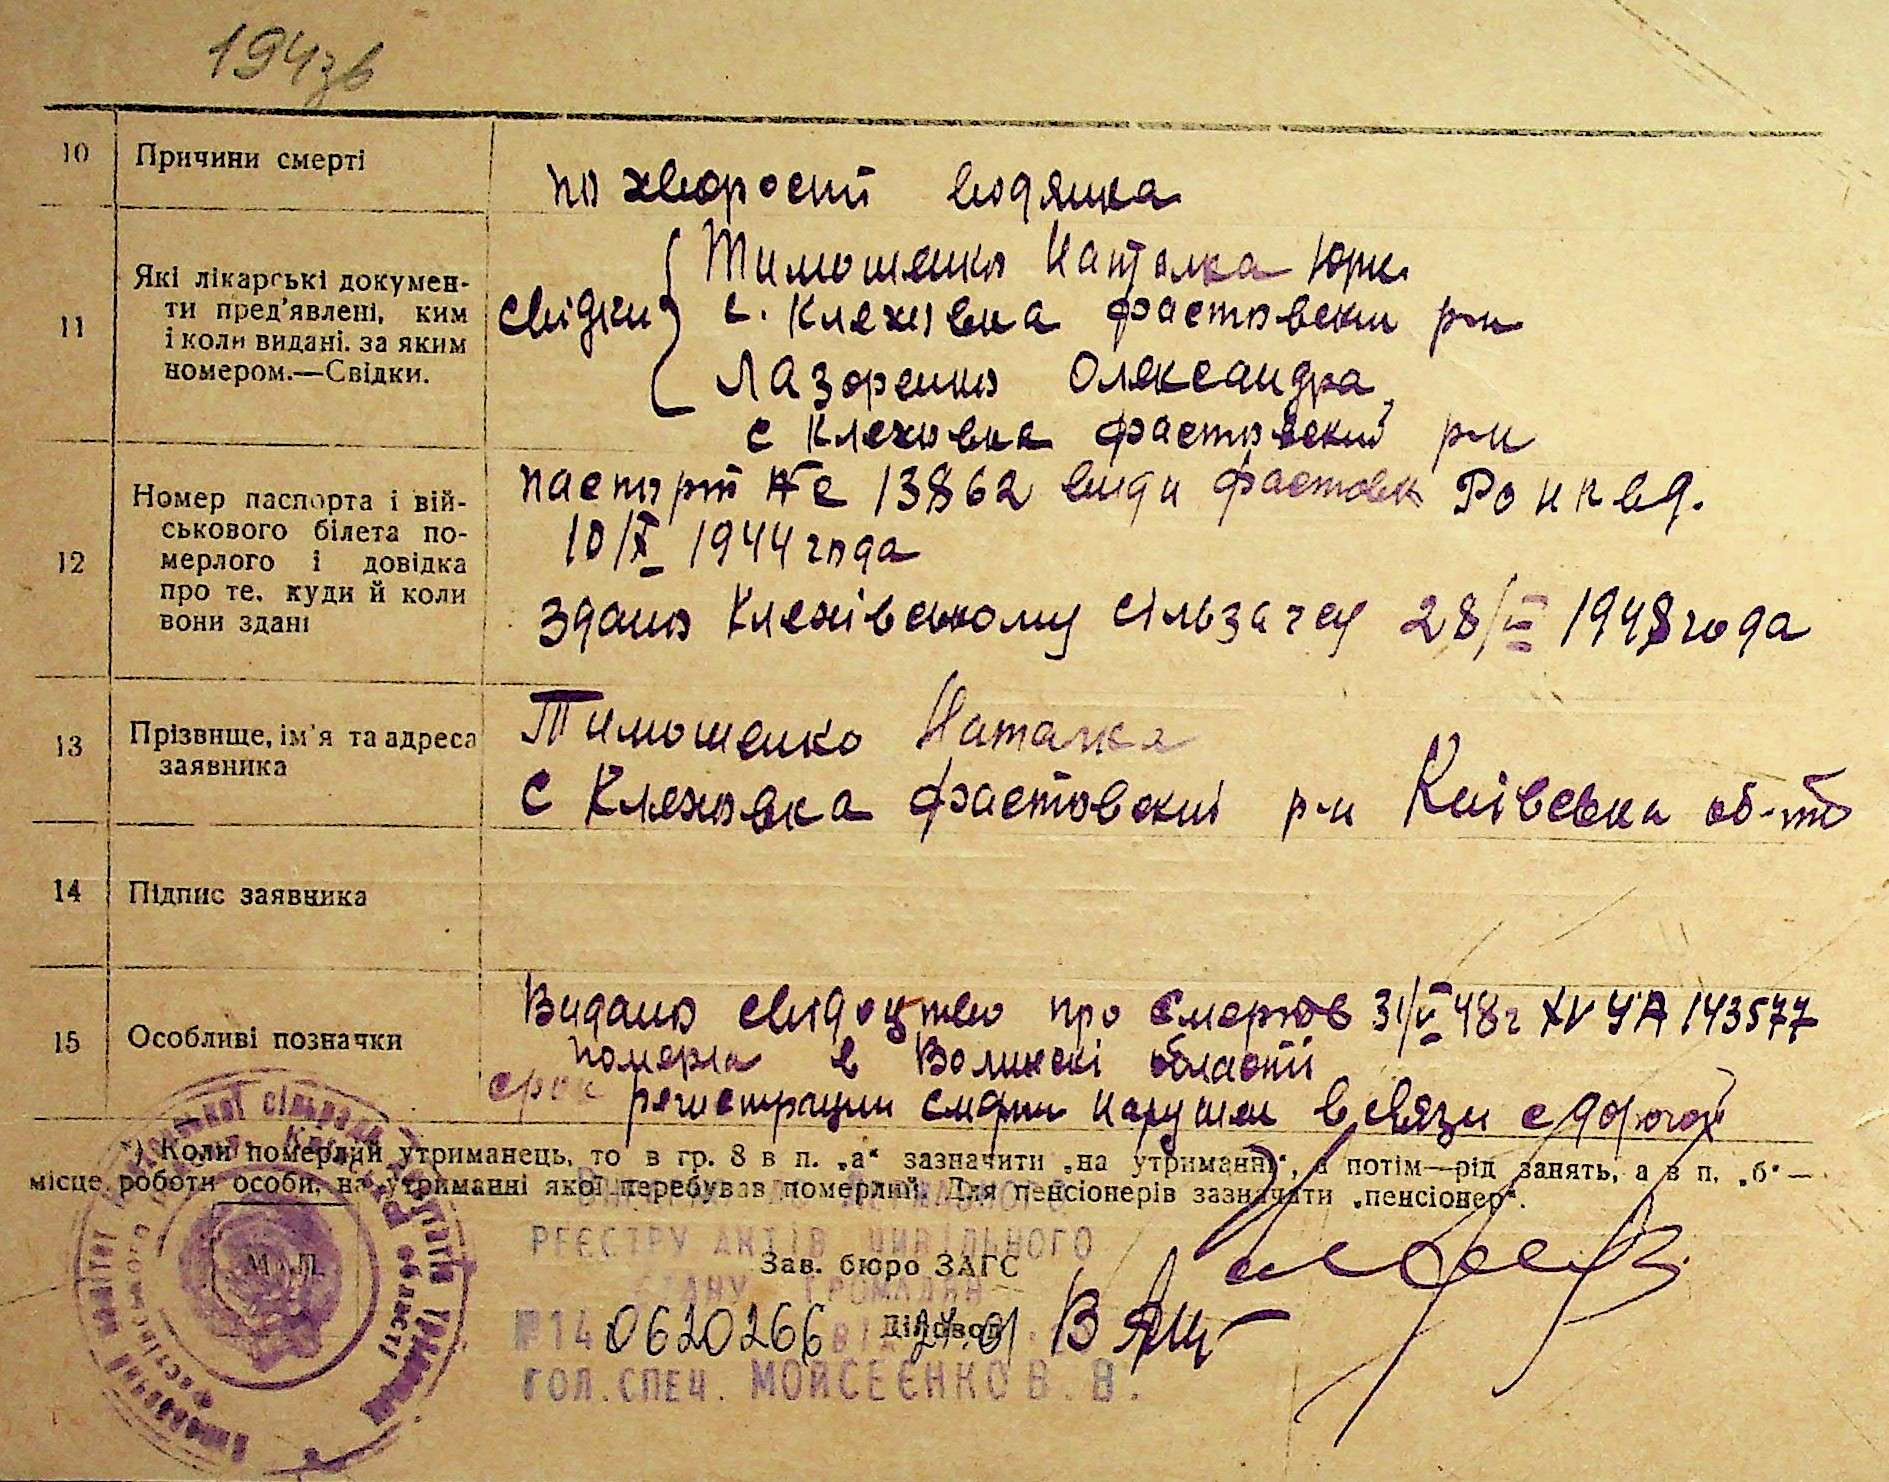 194зв
10 Причини смерті
по хворості водянка
11 Які лікарські докумен-
ти пред'явлені, ким
і коли видані, за яким
номером.—Свідки.
свідки
Тимошенко Наталка Юрк.
с. Клеховка фастовски р-н
Лазоренко Олександра,
с Клеховка фастовский р-н
12 Номер паспорта і вій-
ськового білета по-
мерлого і довідка
про те, куди й коли
вони здані
паспорт № 13862 види фастовск
10/X 1944 года
здано Клехівському 28/ 1948 года
13 Прізвище, ім'я та адреса
заявника
Тимошенко Наталка
с Клеховка фастовскиі р-н Київська об-ть
14 Підпис заявника
15 Особливі позначки
Видано свідоцтво про смерть 31/V 48г XV УА 143577
померла в Волинскі області
срок регистрации смерти нарушен в связи с дорогой
*) Коли померлий утриманець, то в гр. 8 в п. „а“ зазначити „на утриманні“, а потім—рід занять, а в п. „б“—
місце роботи особи, на утриманні якої перебував померлий. Для пенсіонерів зазначати „пенсіонер“.
М. П.
РЕЄСТРУ АКТІВ ЦИВІЛЬНОГО
Зав. бюро ЗАГС
СТАНУ ГРОМАДЯН
№14 0620266 від
Діловод
ГОЛ.СПЕЦ. МОЙСЕЄНКО В.В.